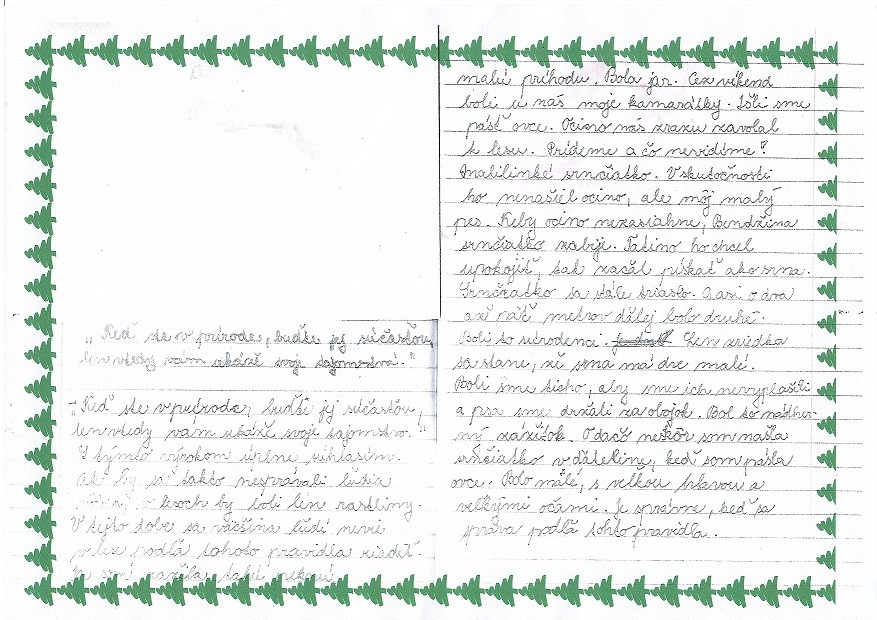 „Keď ste v prírode, buďte jej súčasťou,
len vtedy vám ukáže svoje tajomstvá."
„Keď ste v prírode, buďte jej súčasťou,
len vtedy vám ukáže svoje tajomstvo."
S týmto výrokom úplne súhlasím.
Ak by sa takto nesprávali ľudia
v lesoch by boli len rastliny.
V tejto dobe sa väčšina ľudí nevie
v lese podľa tohoto pravidla riadiť.
Ja som zažila takú peknú
malú príhodu. Bola jar. Cez víkend
boli u nás moje kamarátky. Išli sme
pásť ovce. Ocino nás zrazu zavolal
k lesu. Prídeme a čo nevidíme?
Malilinké srnčiatko. V skutočnosti
ho nenašiel ocino, ale môj malý
pes. Keby ocino nezasiahne, Bendžina
srnčiatko zabije. Tatino ho chcel
upokojiť, tak začal pískať ako srna.
Srnčiatko sa stále triaslo. A asi o dva
až päť metrov ďalej bolo druhé.
Boli to súrodenci. Len zriedka
sa stane, že srna má dve malé.
Boli sme ticho, aby sme ich nevyplašili
a psa sme držali za obojok. Bol to nádher-
ný zážitok. O dačo neskôr som našla
srnčiatko v ďateline, keď som pásla
ovce. Bolo malé, s veľkou hlavou a
veľkými očami. Je správne, keď sa
správa podľa tohto pravidla.